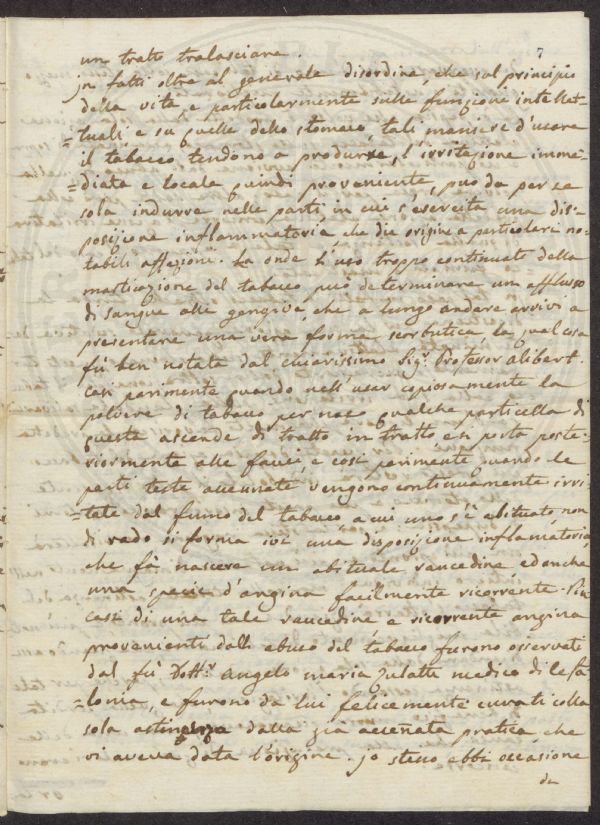 7
un tratto tralasciare.
jn fatti oltre al generale disordine, che sul principio
della vita, e particolarmente sulle funzioni intellet-
=tuali e su quelle dello stomaco, tali maniere d'usare
il tabacco tendono a produrre, l'irritazione imme-
=diata e locale quindi proveniente, può da per se
sola indurre nelle parti, in cui s'esercita una dis-
=posizione inflammatoria, che die origine a particolari no-
tabili affezioni. La onde l'uso troppo continuato della
masticazione del tabacco può determinare un afflusso
di sangue alle gengive, che a lungo andare arrivi a
presentare una vera forma scorbutica, la qual cosa
fù ben notata dal chiarissimo Sigr. Professor alibert.
Così parimente quando nell'usar copiosamente la
polvere di tabacco per naso qualche particella di
questa ascende di tratto in tratto e si porta poste-
riormente alle fauci, e così parimente quando le
parti teste accennate vengono continuamente irri-
=tate dal fumo del tabacco, a cui uno s'è abituato, non
di rado si forma ivi una disposizione inflamatoria,
che fà nascere un abituale raucedine, ed anche
una specie d'angina facilmente ricorrente.
casi di una tale raucedine e ricorrente angina
provenienti dall'abuso del tabacco furono osservati
dal fù Dottr. Angelo maria Zulatti medico di Cefa
=lonia, e furono da lui felicemente curati colla
sola astinenza dalla già accenata pratica, che
vi aveva data l'origine. jo stesso ebbi occasione
da